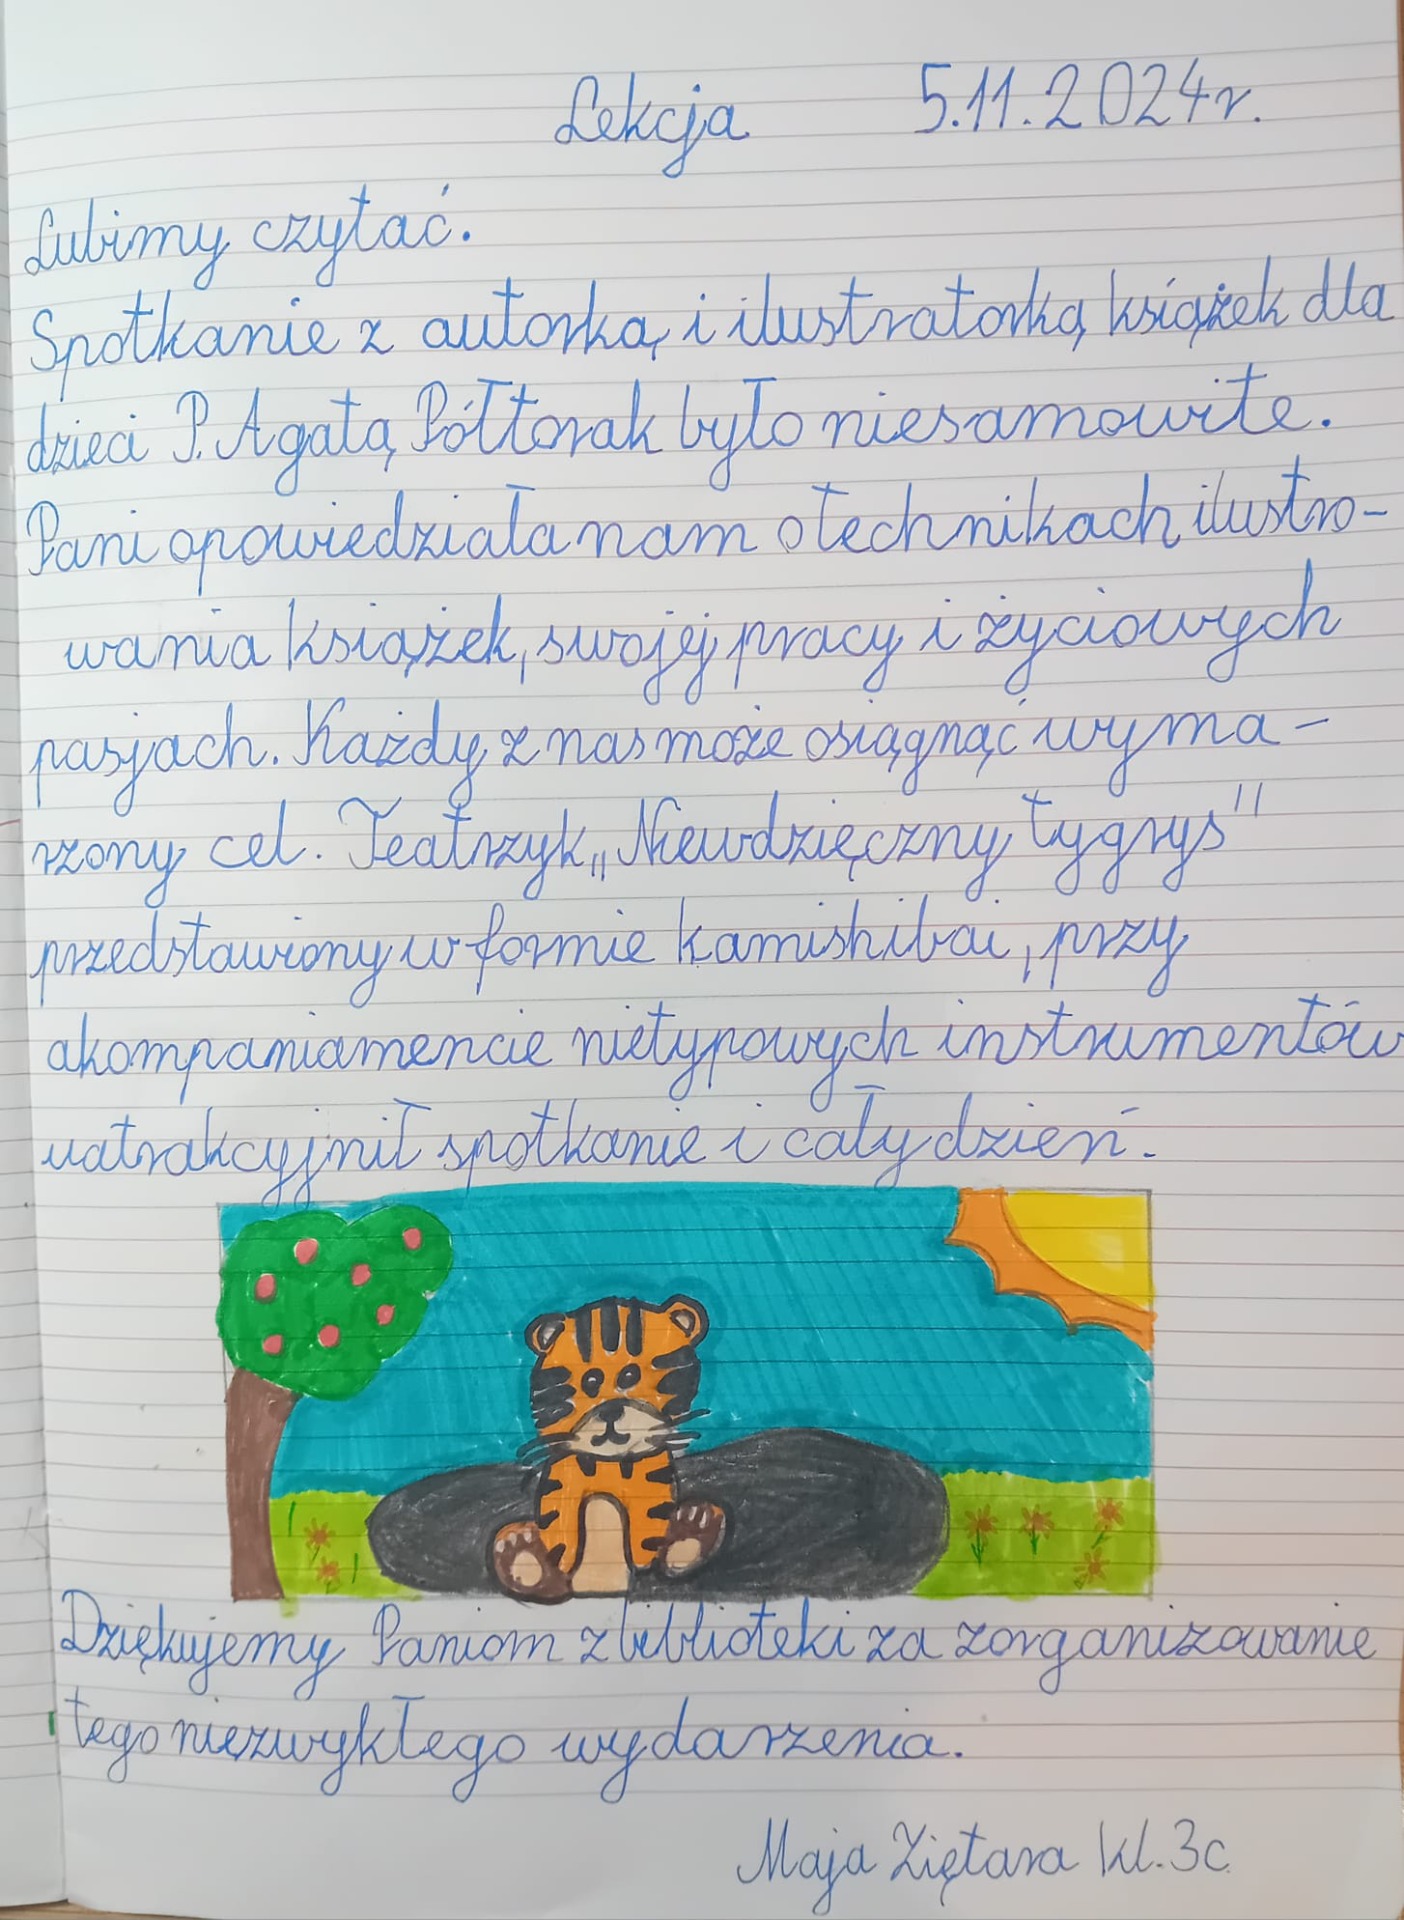 Lekcja 5.11.2024r.
Lubimy czytać.
Spotkanie z autorką i ilustratorką książek dla
dzieci P. Agatą Półtorak było niesamowite.
Pani opowiedziała nam o technikach ilustro-
wania książek, swojej pracy i życiowych
pasjach. Każdy z nas może osiągnąć wyma-
rzony cel. Teatrzyk „Niewdzięczny tygrys"
przedstawiony w formie kamishibai, przy
akompaniamencie nietypowych instrumentów
uatrakcyjnił spotkanie i cały dzień.
Dziękujemy Paniom z biblioteki za zorganizowanie
tego niezwykłego wydarzenia.
Maja Ziętara kl. 3c